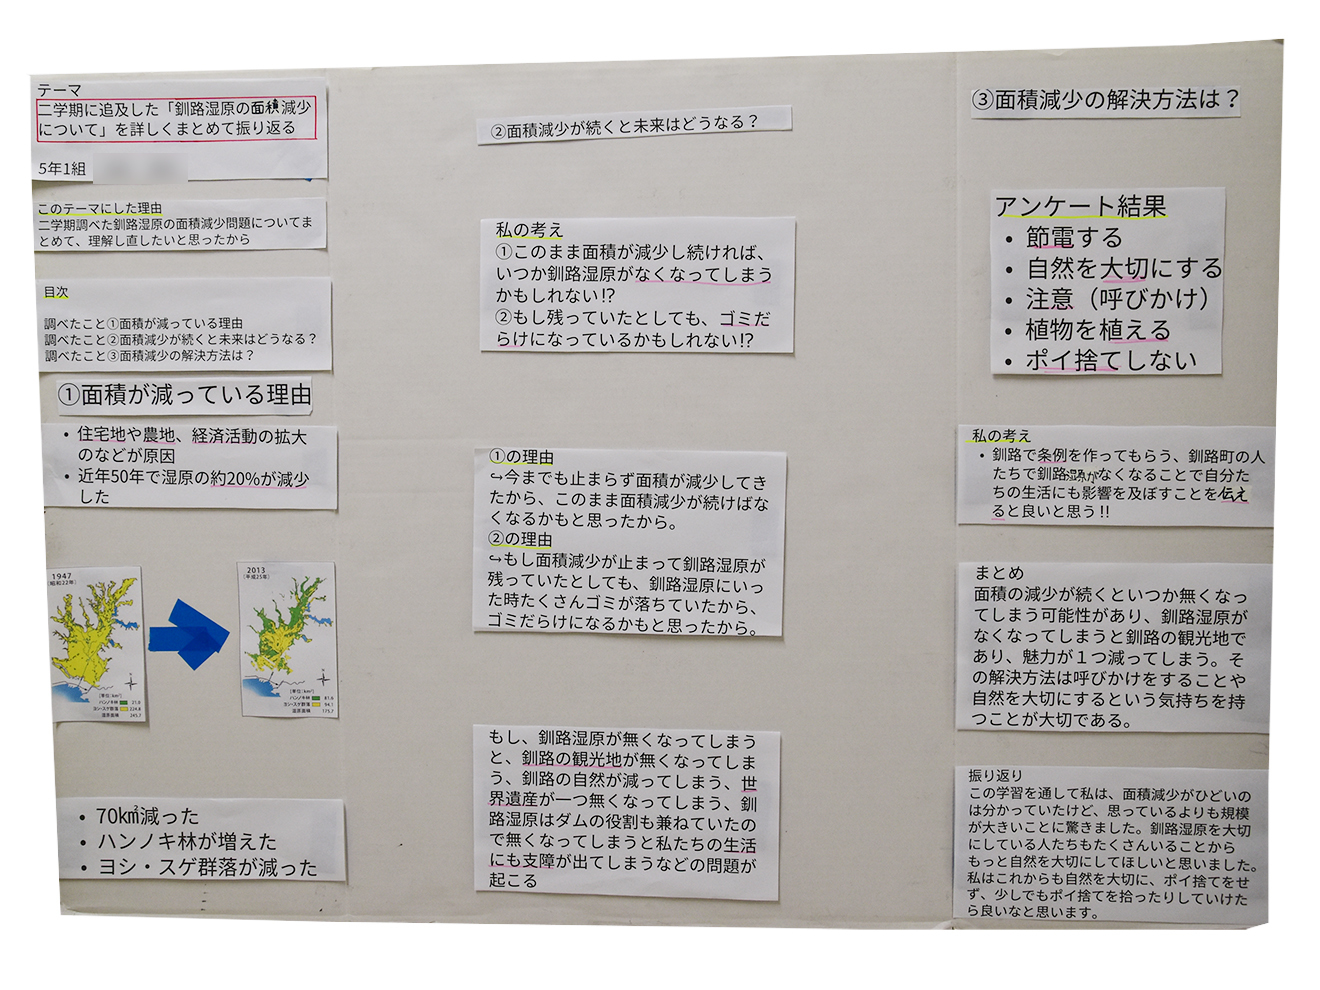 テーマ
二学期に追及した「釧路湿原の面積減少
について」を詳しくまとめて振り返る
5年1組
このテーマにした理由
二学期調べた釧路湿原の面積減少問題についてま
とめて、理解し直したいと思ったから
目次
調べたこと①面積が減っている理由
調べたこと②面積減少が続くと未来はどうなる？
調べたこと③面積減少の解決方法は？
①面積が減っている理由
• 住宅地や農地、経済活動の拡大
のなどが原因
• 近年50年で湿原の約20%が減少
した
1947
(昭和22年)
[単位:km²]
ハンノキ林 21.0
ヨシ・スゲ群落 224.8
湿原面積 245.7
2013
(平成25年)
[単位:km²]
ハンノキ林 81.6
ヨシ・スゲ群落 94.1
湿原面積 175.7
• 70㎢減った
• ハンノキ林が増えた
• ヨシ・スゲ群落が減った
②面積減少が続くと未来はどうなる？
私の考え
①このまま面積が減少し続ければ、
いつか釧路湿原がなくなってしまう
かもしれない⁉
②もし残っていたとしても、ゴミだ
らけになっているかもしれない⁉
①の理由
↪今までも止まらず面積が減少してき
たから、このまま面積減少が続けばな
くなるかもと思ったから。
②の理由
↪もし面積減少が止まって釧路湿原が
残っていたとしても、釧路湿原にいっ
た時たくさんゴミが落ちていたから、
ゴミだらけになるかもと思ったから。
もし、釧路湿原が無くなってしまう
と、釧路の観光地が無くなってしま
う、釧路の自然が減ってしまう、世
界遺産が一つ無くなってしまう、釧
路湿原はダムの役割も兼ねていたの
で無くなってしまうと私たちの生活
にも支障が出てしまうなどの問題が
起こる
③面積減少の解決方法は？
アンケート結果
• 節電する
• 自然を大切にする
• 注意（呼びかけ）
• 植物を植える
• ポイ捨てしない
私の考え
• 釧路で条例を作ってもらう、釧路町の人
たちで釧路湿原がなくなることで自分た
ちの生活にも影響を及ぼすことを伝え
ると良いと思う‼
まとめ
面積の減少が続くといつか無くなっ
てしまう可能性があり、釧路湿原が
なくなってしまうと釧路の観光地で
あり、魅力が１つ減ってしまう。そ
の解決方法は呼びかけをすることや
自然を大切にするという気持ちを持
つことが大切である。
振り返り
この学習を通して私は、面積減少がひどいの
は分かっていたけど、思っているよりも規模
が大きいことに驚きました。釧路湿原を大切
にしている人たちもたくさんいることから
もっと自然を大切にしてほしいと思いました。
私はこれからも自然を大切に、ポイ捨てをせ
ず、少しでもポイ捨てを拾ったりしていけた
ら良いなと思います。